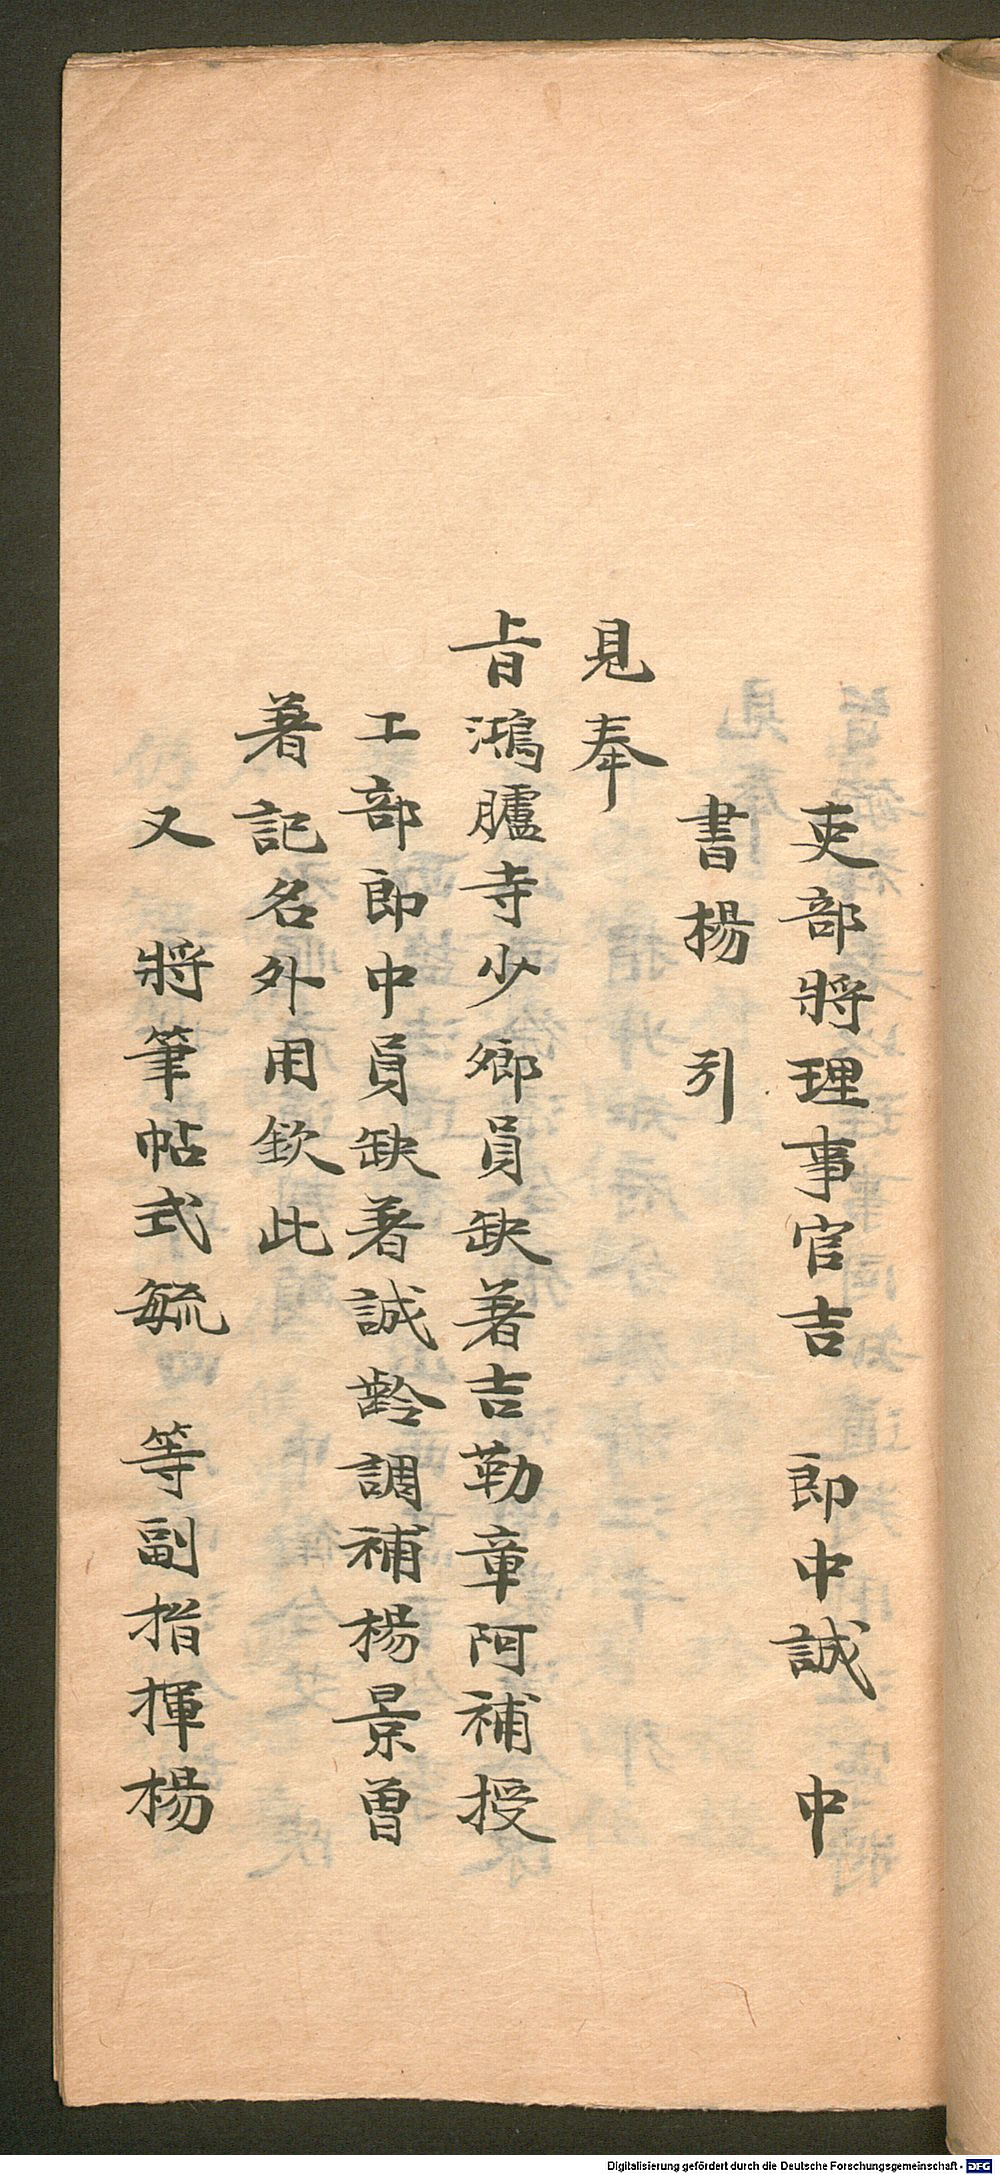 吏部將理事官吉　郎中誠　中
書楊　引
見奉
旨鴻臚寺少卿員缺著吉勒章阿補授
工部郎中員缺著誠齡調補楊景曾
著記名外用欽此
又　將筆帖式毓　等副指揮楊
Digitalisierung gefördert durch die Deutsche Forschungsgemeinschaft - DFG